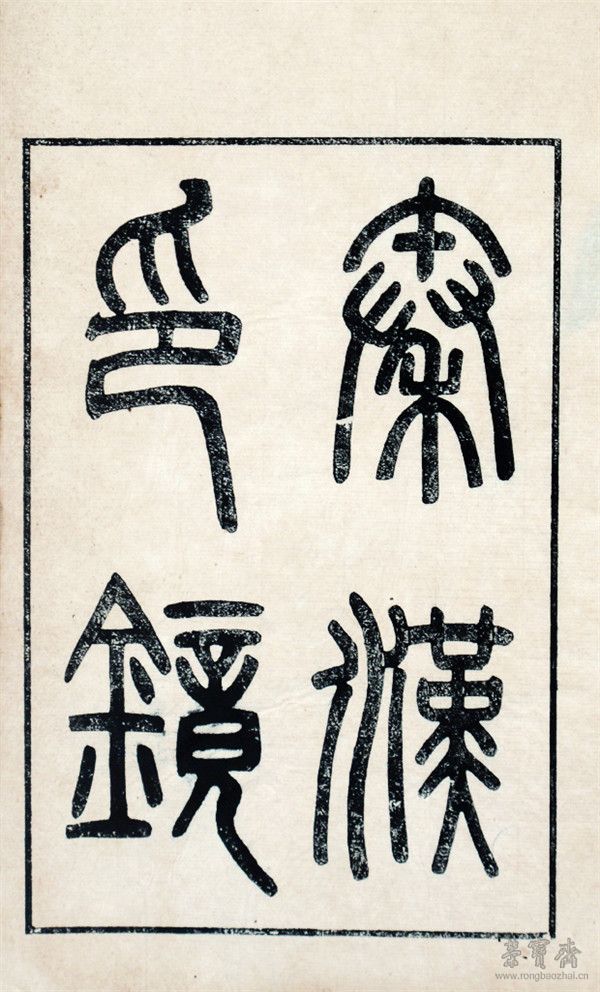 秦漢
印鏡
榮寶齋
www.rongbaozhai.cn